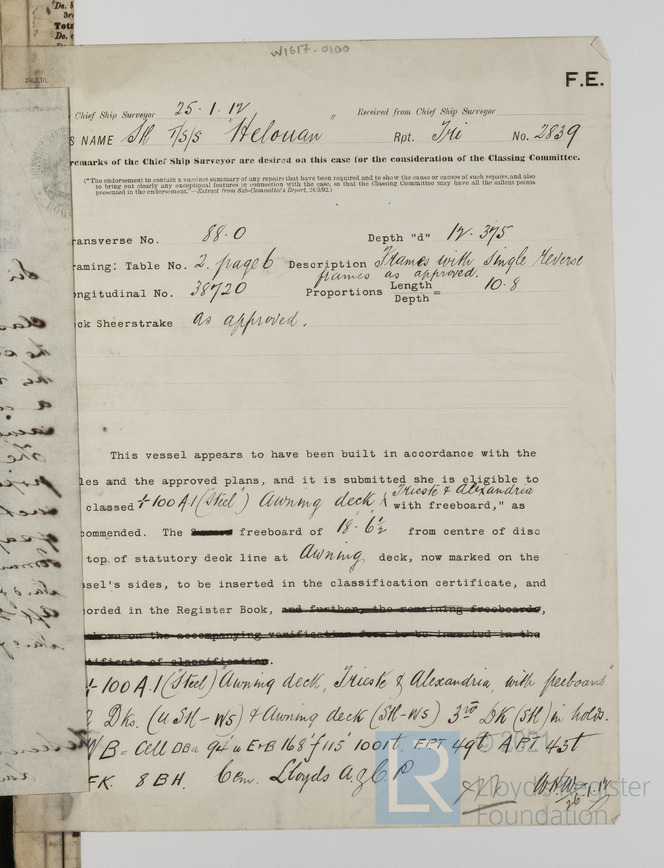 W1617-0100
F.E.
Chief Ship Surveyor 25.1.12 Received from Chief Ship Surveyor
S NAME SH T/S/S "Helouan" Rpt. Tri No. 2839
remarks of the Chief Ship Surveyor are desired on this case for the consideration of the Classing Committee.
("The endorsement to contain a succinct summary of any repairs that have been required and to show the cause or causes of such repairs, and also
to bring out clearly any exceptional features in connection with the case, so that the Classing Committee may have all the salient points
presented in the endorsement."—Extract from Sub-Committee's Report,
ransverse No. 88.0 Depth "d" 12.375
raming: Table No. 2. page 6 Description Frames with single reverse
frames as approved.
ongitudinal No. 38720 Proportions Length
Depth = 10.8
ck Sheerstrake as approved.
This vessel appears to have been built in accordance with the
les and the approved plans, and it is submitted she is eligible to
classed 100 A.1 (Steel) Awning deck Trieste & Alexandria with freeboard," as
commended. The freeboard of 18-6½ from centre of disc
top of statutory deck line at Awning deck, now marked on the
ssel's sides, to be inserted in the classification certificate, and
orded in the Register Book, and further, the remaining freeboards,
shown on the accompanying verification form to be inserted in the
tificate of classification.
100 A.1 (Steel) Awning deck, Trieste & Alexandria, with freeboard"
2 Dks. (USH-WS) & Awning deck (SH-WS) 3rd DK (SH) in holds.
WB = Cell DBa 94' u E&B 168' f 115' 1001t. FPT 49t APT 43t
FK. 8 BH. Cem. Lloyds A. & C. P
© 2021
LR
Lloyd's Register
Foundation